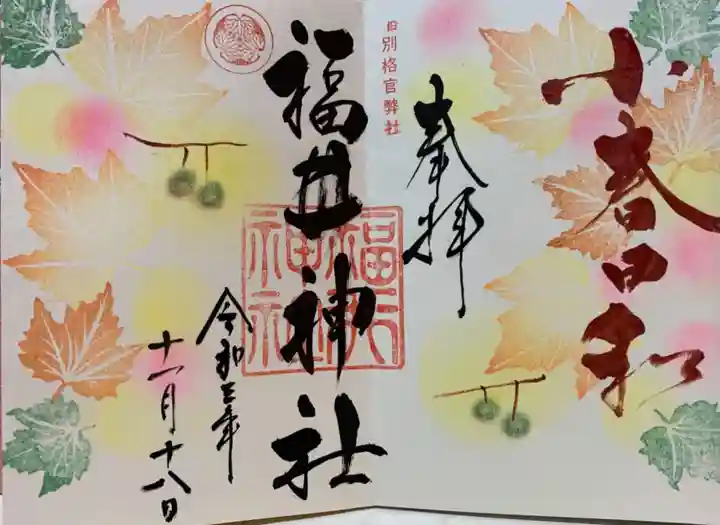 小春日和
旧別格官幣社
奉拝
福井神社
福井神社
令和三年
十一月十八日